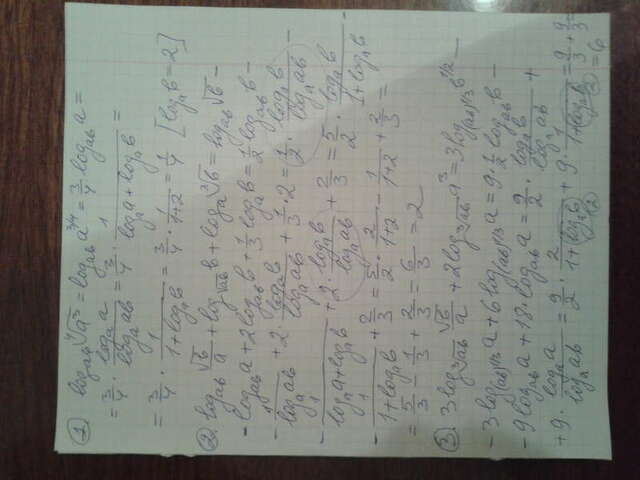 ① log_{ab} ⁴√a³ = log_{ab} a^{3/4} = 3/4 log_{ab} a =
= 3/4 · log_a a / log_a ab = 3/4 · 1 / (log_a a + log_a b) =
= 3/4 · 1 / (1 + log_a b) = 3/4 · 1 / (1+2) = 1/4 [log_a b = 2]
② log_{ab} √b / a + log_{√ab} b + log_a ³√b = log_{ab} √b –
– log_{ab} a + 2 log_{ab} b + 1/3 log_a b = 1/2 log_{ab} b –
– 1 / log_a ab + 2 · log_a b / log_a ab + 1/3 · 2 = 1/2 · log_a b / log_a ab –
– 1 / (log_a a + log_a b) + 2 · log_a b / log_a ab + 2/3 = 5/2 · log_a b / (1 + log_a b) –
– 1 / (1 + log_a b) + 2/3 = 5/2 · 2 / (1+2) – 1 / (1+2) + 2/3 =
= 5/3 – 1/3 + 2/3 = 6/3 = 2
③ 3 log_{³√ab} √b / a + 2 log_{³√ab} a³ = 3 log_{(ab)^{1/3}} b^{1/2} –
– 3 log_{(ab)^{1/3}} a + 6 log_{(ab)^{1/3}} a = 9 · 1/2 log_{ab} b –
– 9 log_{ab} a + 18 · log_{ab} a = 9/2 · log_a b / log_a ab +
+ 9 · log_a a / log_a ab = 9/2 · 2 / (1 + log_a b) + 9 · 1 / (1 + log_a b) = 9/3 + 9/3
= 6